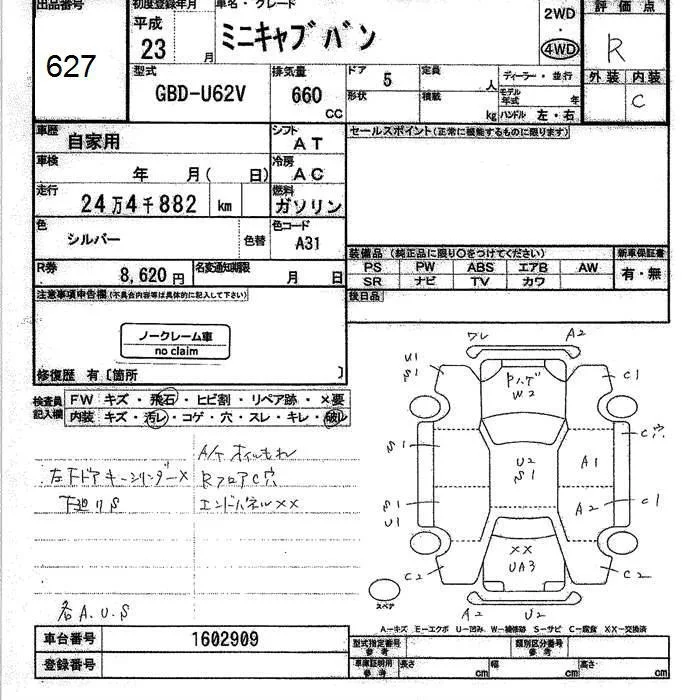 出品番号
627
初度登録年月
平成
23 月
車名・グレード
ミニキャブバン
2WD
・
4WD
評価点
R
外装 内装
C
型式
GBD-U62V
排気量
660
CC
ドア
5
定員
人
形状
積載
kg
ディーラー・並行
モデル年式 年
ハンドル 左・右
車歴
自家用
シフト
AT
車検
年 月( 日)
冷房
AC
走行
24万4千882 km
燃料
ガソリン
色
シルバー
色替
色コード
A31
R券
8,620円
名変通知期限
月 日
セールスポイント(正常に機能するものに限ります)
装備品(純正品に限り○をつけてください)
PS PW ABS エアB AW
SR ナビ TV カワ
新車保証書
有・無
後日品
注意事項申告欄(不具合内容等は具体的に記入して下さい)
ノークレーム車
no claim
修復歴 有〔箇所 〕
検査員記入欄
FW キズ・飛石・ヒビ割・リペア跡・×要
内装 キズ・汚レ・コゲ・穴・スレ・キレ・破レ
A/T オイルもれ
左FドアキーシリンダーX RフロアC穴
下廻りS エンドパネルXX
各A.U.S
ワレ A2
U1
S1
Pハゲ
W2
C1
S1
U2
S1
A1
C穴
S1
U1
A2
C1
XX
UA3
C2
C2
A2 U2
スペア
A−キズ E−エクボ U−凹み W−補修跡 S−サビ C−腐食 XX−交換済
車台番号
1602909
登録番号
型式指定番号
参考
類別区分番号
参考
車庫証明用
参考
長さ cm 幅 cm 高さ cm